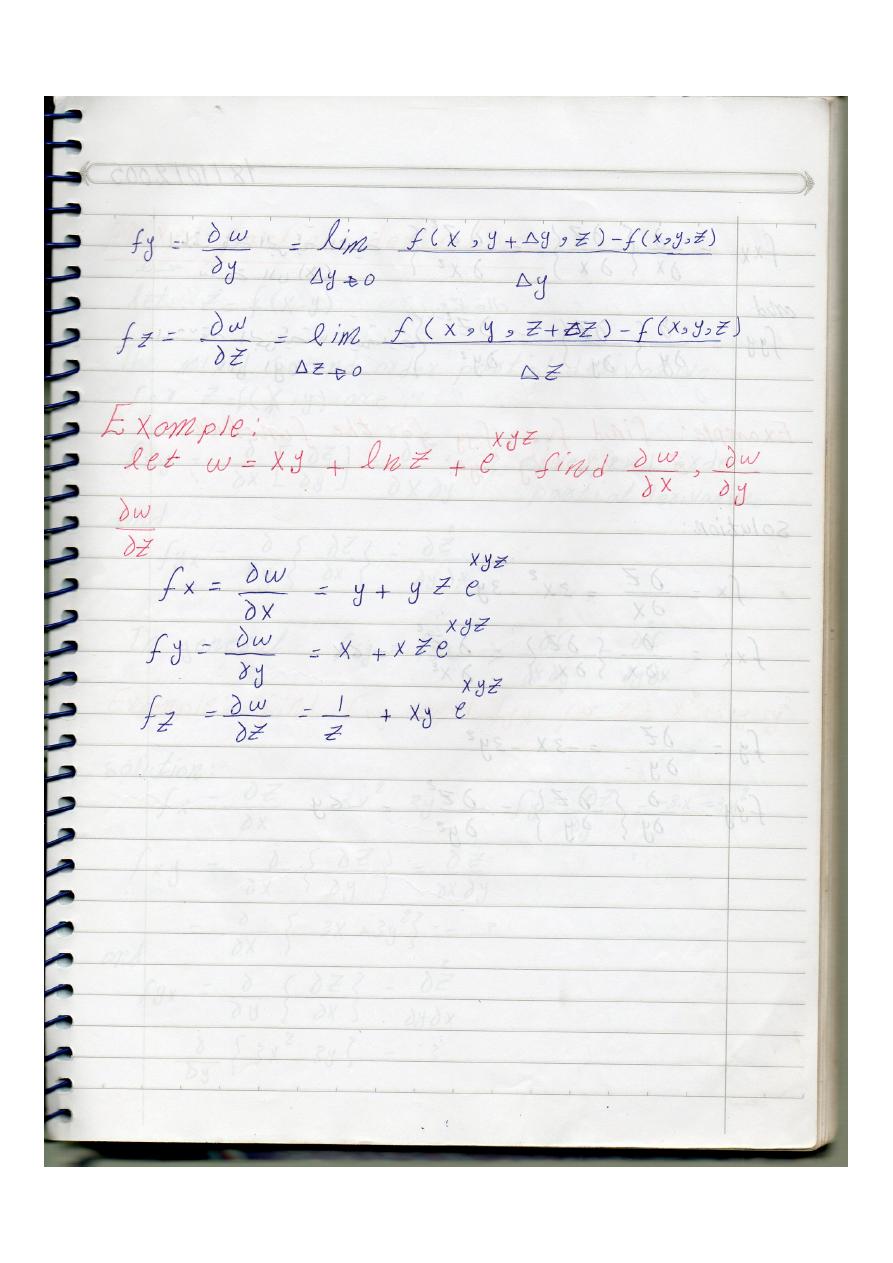 fy = ∂w/∂y = lim Δy→0 f(x, y+Δy, z) - f(x,y,z) / Δy
fz = ∂w/∂z = lim Δz→0 f(x, y, z+Δz) - f(x,y,z) / Δz
Example:
let w = xy + ln z + e^xyz find ∂w/∂x, ∂w/∂y
∂w/∂z
fx = ∂w/∂x = y + yz e^xyz
fy = ∂w/∂y = x + xz e^xyz
fz = ∂w/∂z = 1/z + xy e^xyz